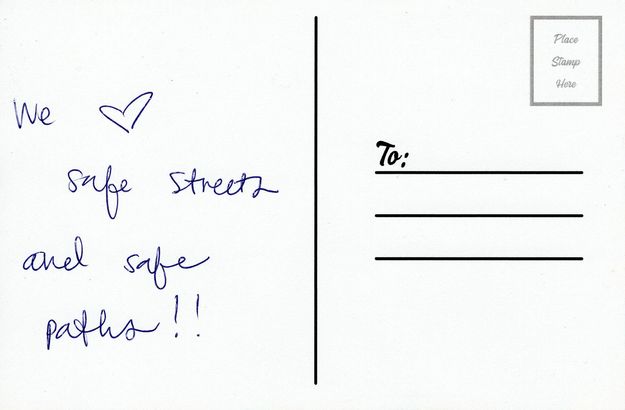 We ♡
safe streets
and safe
paths!!
Place
Stamp
Here
To: